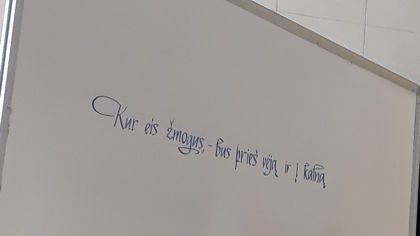 Kur eis žmogus, - bus prieš vėją ir į kalną